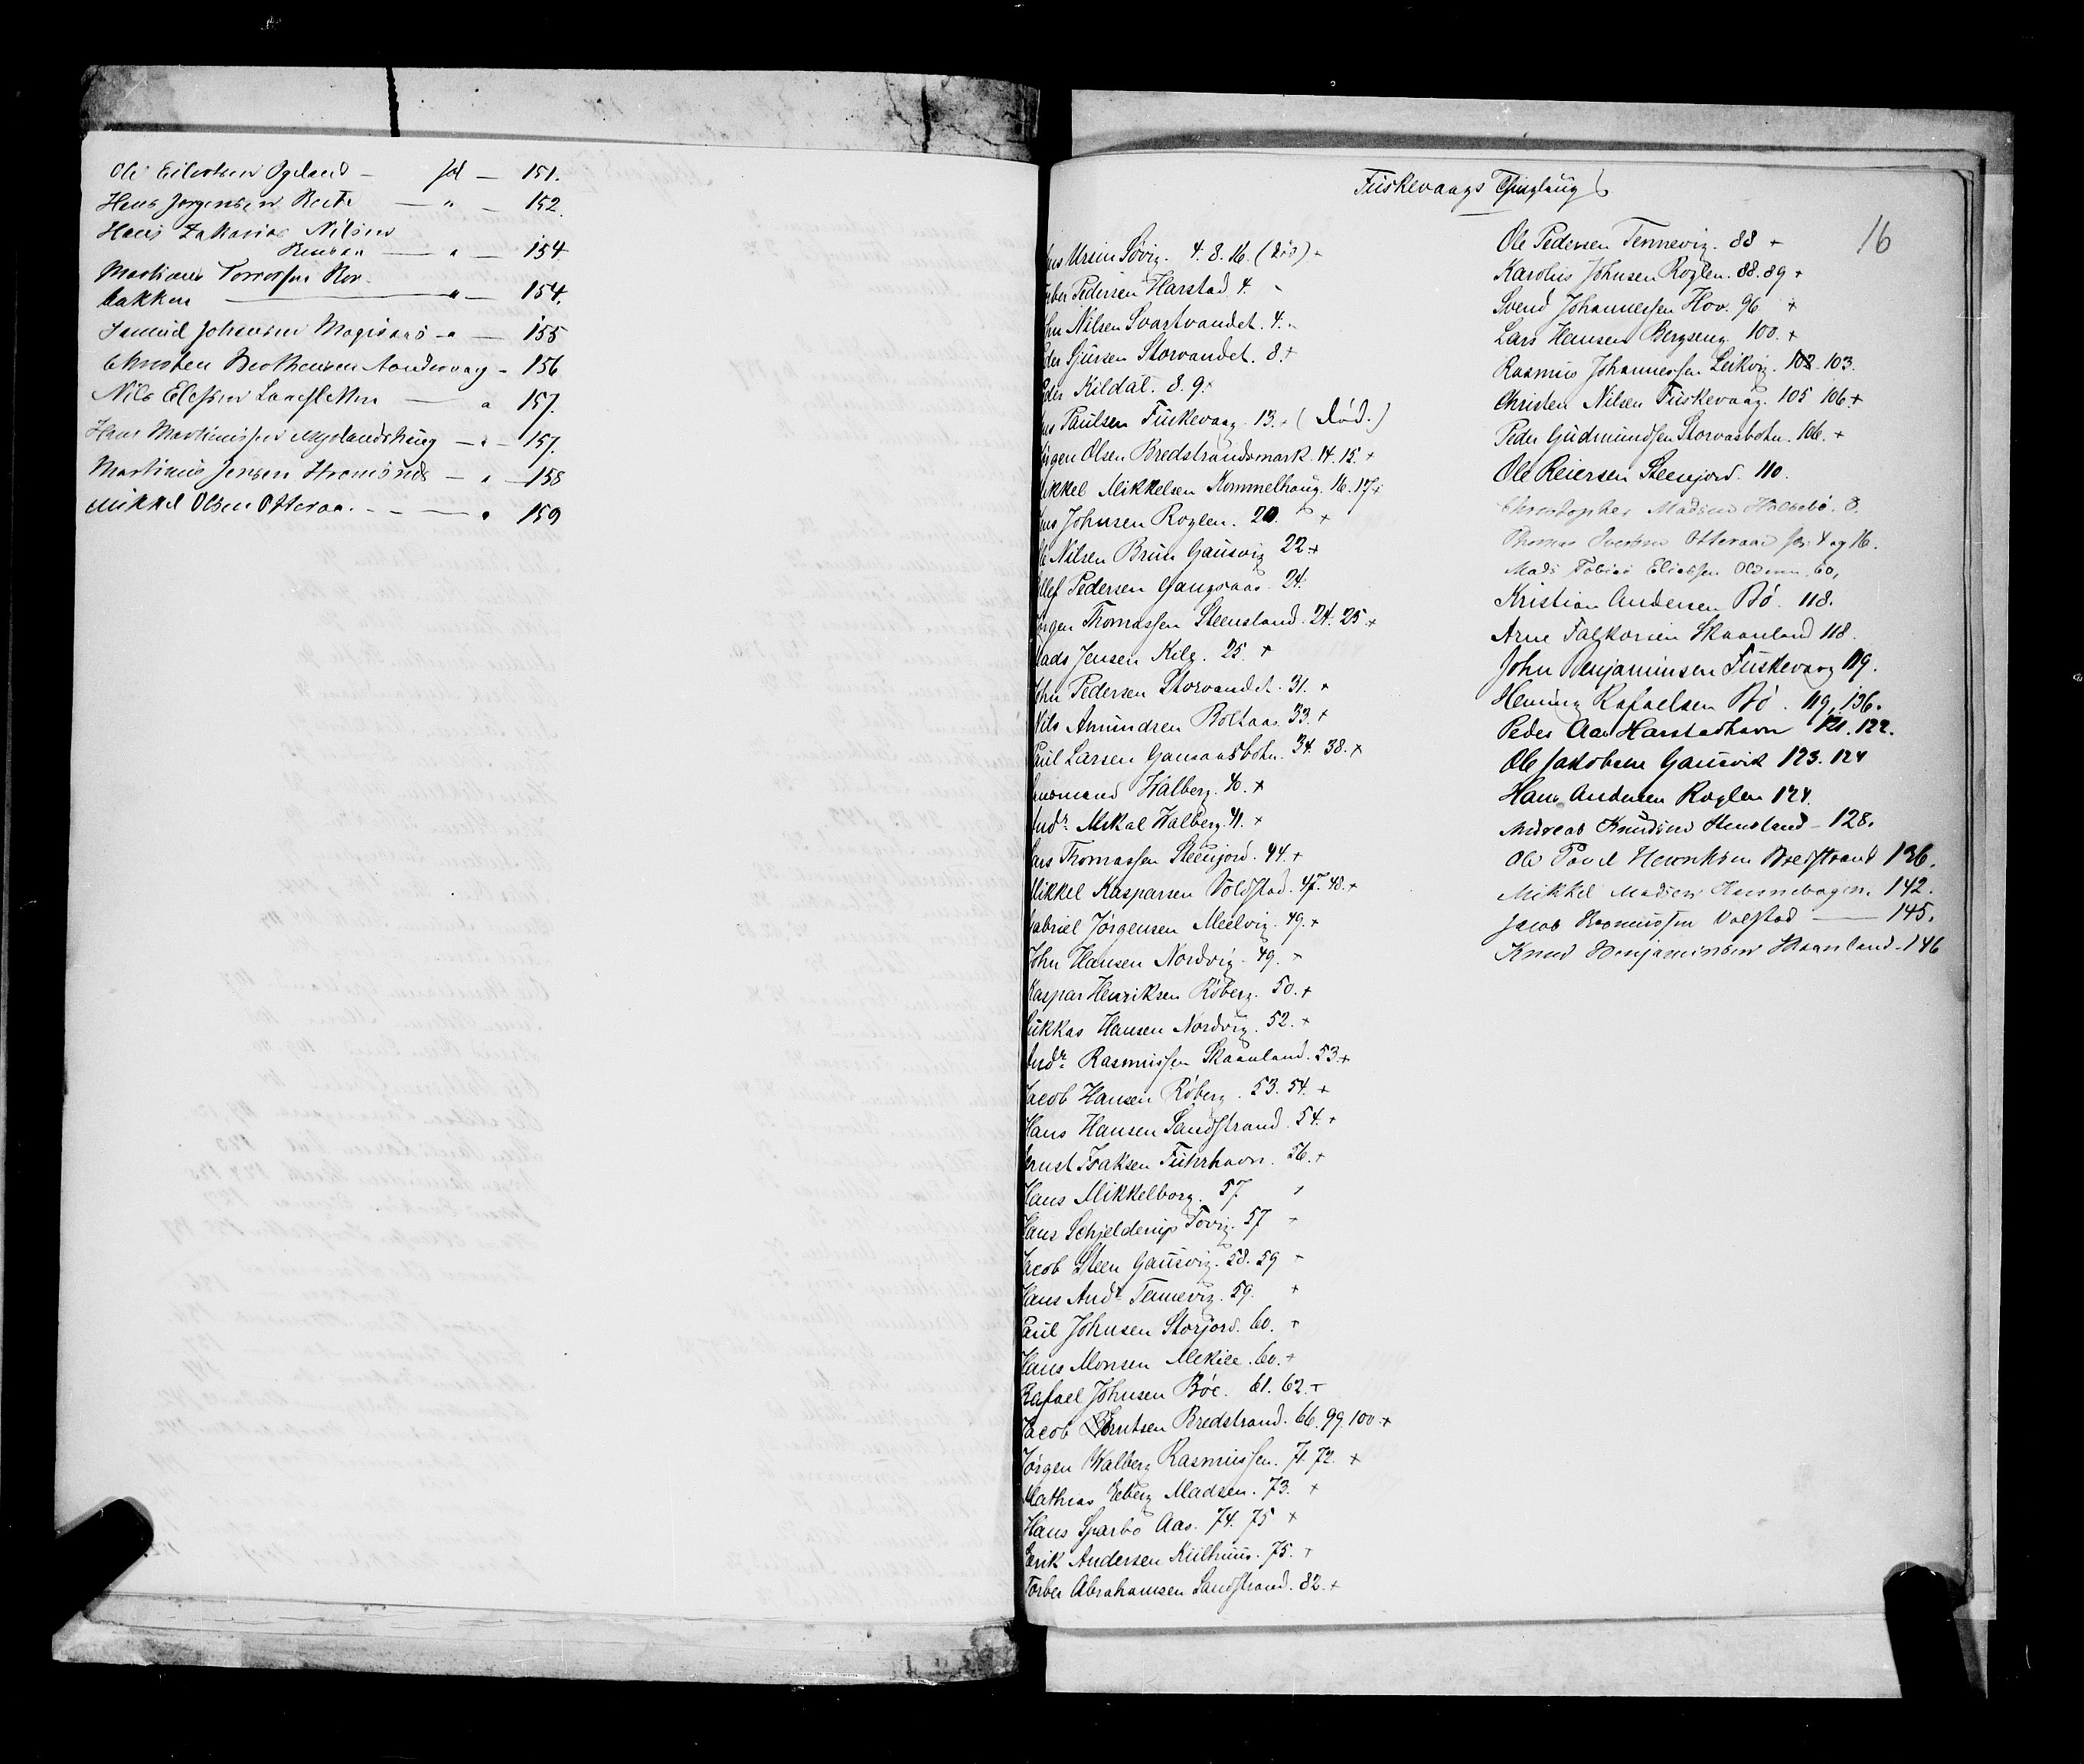 Ole Eilertsen Ogeland - fol - 151.
Hans Jørgensen - " - 152.
Hans Zakarias Nilsen
- " - 154
Martinus
bakken - " - 154.
Samuel Johansen - " - 155
Christen Berthensen Sondervaag - 156
Nils - " - 157.
Hans - " - 157.
Martinus Jensen - " - 158
Mikkel Olsen Otteraa. - - - " 159
Fuskevaags Thinglaug
16
Ursin Sørvig. 4. 8. 16. (død) +
Pedersen Harstad 4.
Nilsen Svartvandet. 4.
Sjursen Storvandet. 8. +
Kildal. 8. 9. +
Paulsen Fuskevaag. 13. + (død.)
Jørgen Olsen Bredstrandsmark. 14. 15. +
Mikkel Mikkelsen Kommelhaug. 16. 17 +
Johnsen Roglen. 20. +
Nilsen Brun Gausvig 22 +
Ellef Pedersen Gangsaas. 24.
Jørgen Thomassen Steensland. 24. 25. +
Mads Jensen Kilg. 25. +
John Pedersen Storvandet. 31. +
Nils Amundsen Boltaas. 33. +
Paul Larsen Gansaasbotn. 34. 38. +
Halberg. 40. +
Andr. Mikal Halberg. 41. +
Lars Thomassen Steenjord. 44. +
Mikkel Kaspersen Voldstad. 47. 48. +
Gabriel Jørgensen Melvig. 49. +
John Hansen Nordvig. 49. +
Kaspar Henriksen Røberg. 50. +
Lukkas Hansen Nordvig. 52. +
Andr. Rasmussen Skaanland. 53. +
Jacob Hansen Røberg. 53. 54. +
Hans Hansen Sandstrand. 54. +
Ernst Isaksen Fuhrhavn. 56. +
Hans Mikkelborg. 57
Hans Schjelderup Tovig. 57 +
Jacob Steen Gausvig. 58. 59 +
Hans Andr. Tennevig. 59. +
Paul Johnsen Storjord. 60. +
Hans Monsen 60. +
Rafael Johnsen Bøe. 61. 62. +
Jacob Berntsen Bredstrand. 66. 99. 100. +
Jørgen Walberg Rasmussen. 71. 72. +
Mathias Eberg Madsen. 73. +
Hans Sparbo Aas. 74. 75 +
Erik Andersen Kulhuus. 75. +
Torber Abrahamsen Sandstrand. 82. +
Ole Pedersen Tennevig. 88 +
Karolus Johnsen Roglen. 88. 89 +
Svend Johannessen Hov. 96 +
Lars Hansen Bergseng. 100. +
Rasmus Johannessen Leikvig. 102. 103.
Christen Nilsen Fuskevaag. 105 106. +
Peder Gudmundsen Storvasbotn. 106. +
Ole Reiersen Steenjord. 110.
Christopher Madsen Halsebø. 8.
Thomas Iversen Otteraa for 4 og 16.
Mads Tobias Eliassen 60,
Kristian Andersen Bø. 118.
Arne Falkorien Skaanland 118.
John Benjaminsen Fuskevaag 119.
Hennig Rafaelsen Bø. 119, 136.
Peder Aas Harstadhavn 121. 122.
Ole Jakobsen Gausvik 123. 124
Hans Andersen Roglen 124.
Andreas Knudsen Stensland - 128.
Ole Povel Henriksen Bredstrand 136.
Mikkel Madsen Hennebogen. 142.
Jacob Rasmussen Volstad - 145.
Knud Benjaminsen Skaanland - 146